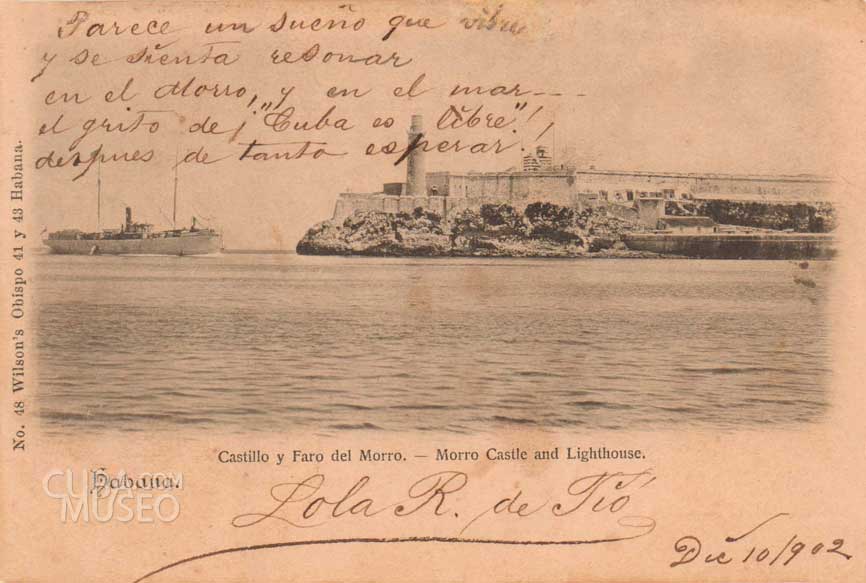 Parece un sueño que vibre
y se sienta resonar
en el Morro, y en el mar---
el grito de ¡"Cuba es libre"!
despues de tanto esperar.!
No. 48 Wilson's Obispo 41 y 43 Habana.
Castillo y Faro del Morro. — Morro Castle and Lighthouse.
Habana.
CUBA.COM
MUSEO
Lola R. de Tió
Dic 10/902